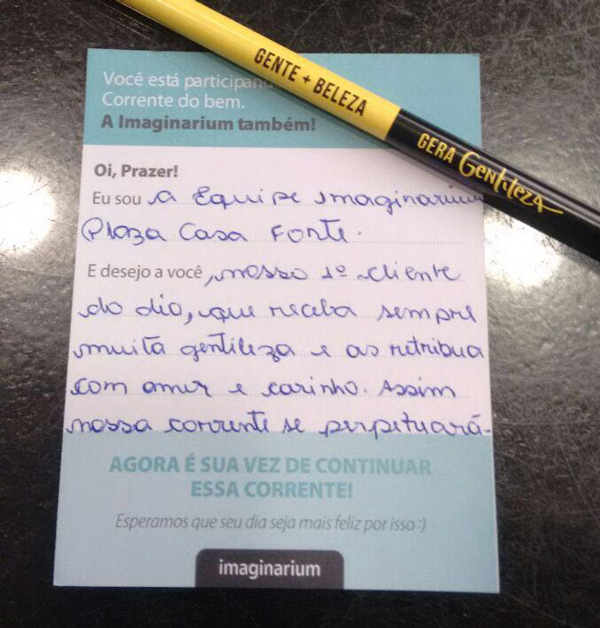 Você está participand
Corrente do bem.
A Imaginarium também!
GENTE + BELEZA
GERA Gentileza
Oi, Prazer!
Eu sou a Equipe Imaginarium
Plaza Casa Forte.
E desejo a você, nosso 1º cliente
do dia, que receba sempre
muita gentileza e as retribua
com amor e carinho. Assim
nossa corrente se perpetuará.
AGORA É SUA VEZ DE CONTINUAR
ESSA CORRENTE!
Esperamos que seu dia seja mais feliz por isso :)
imaginarium